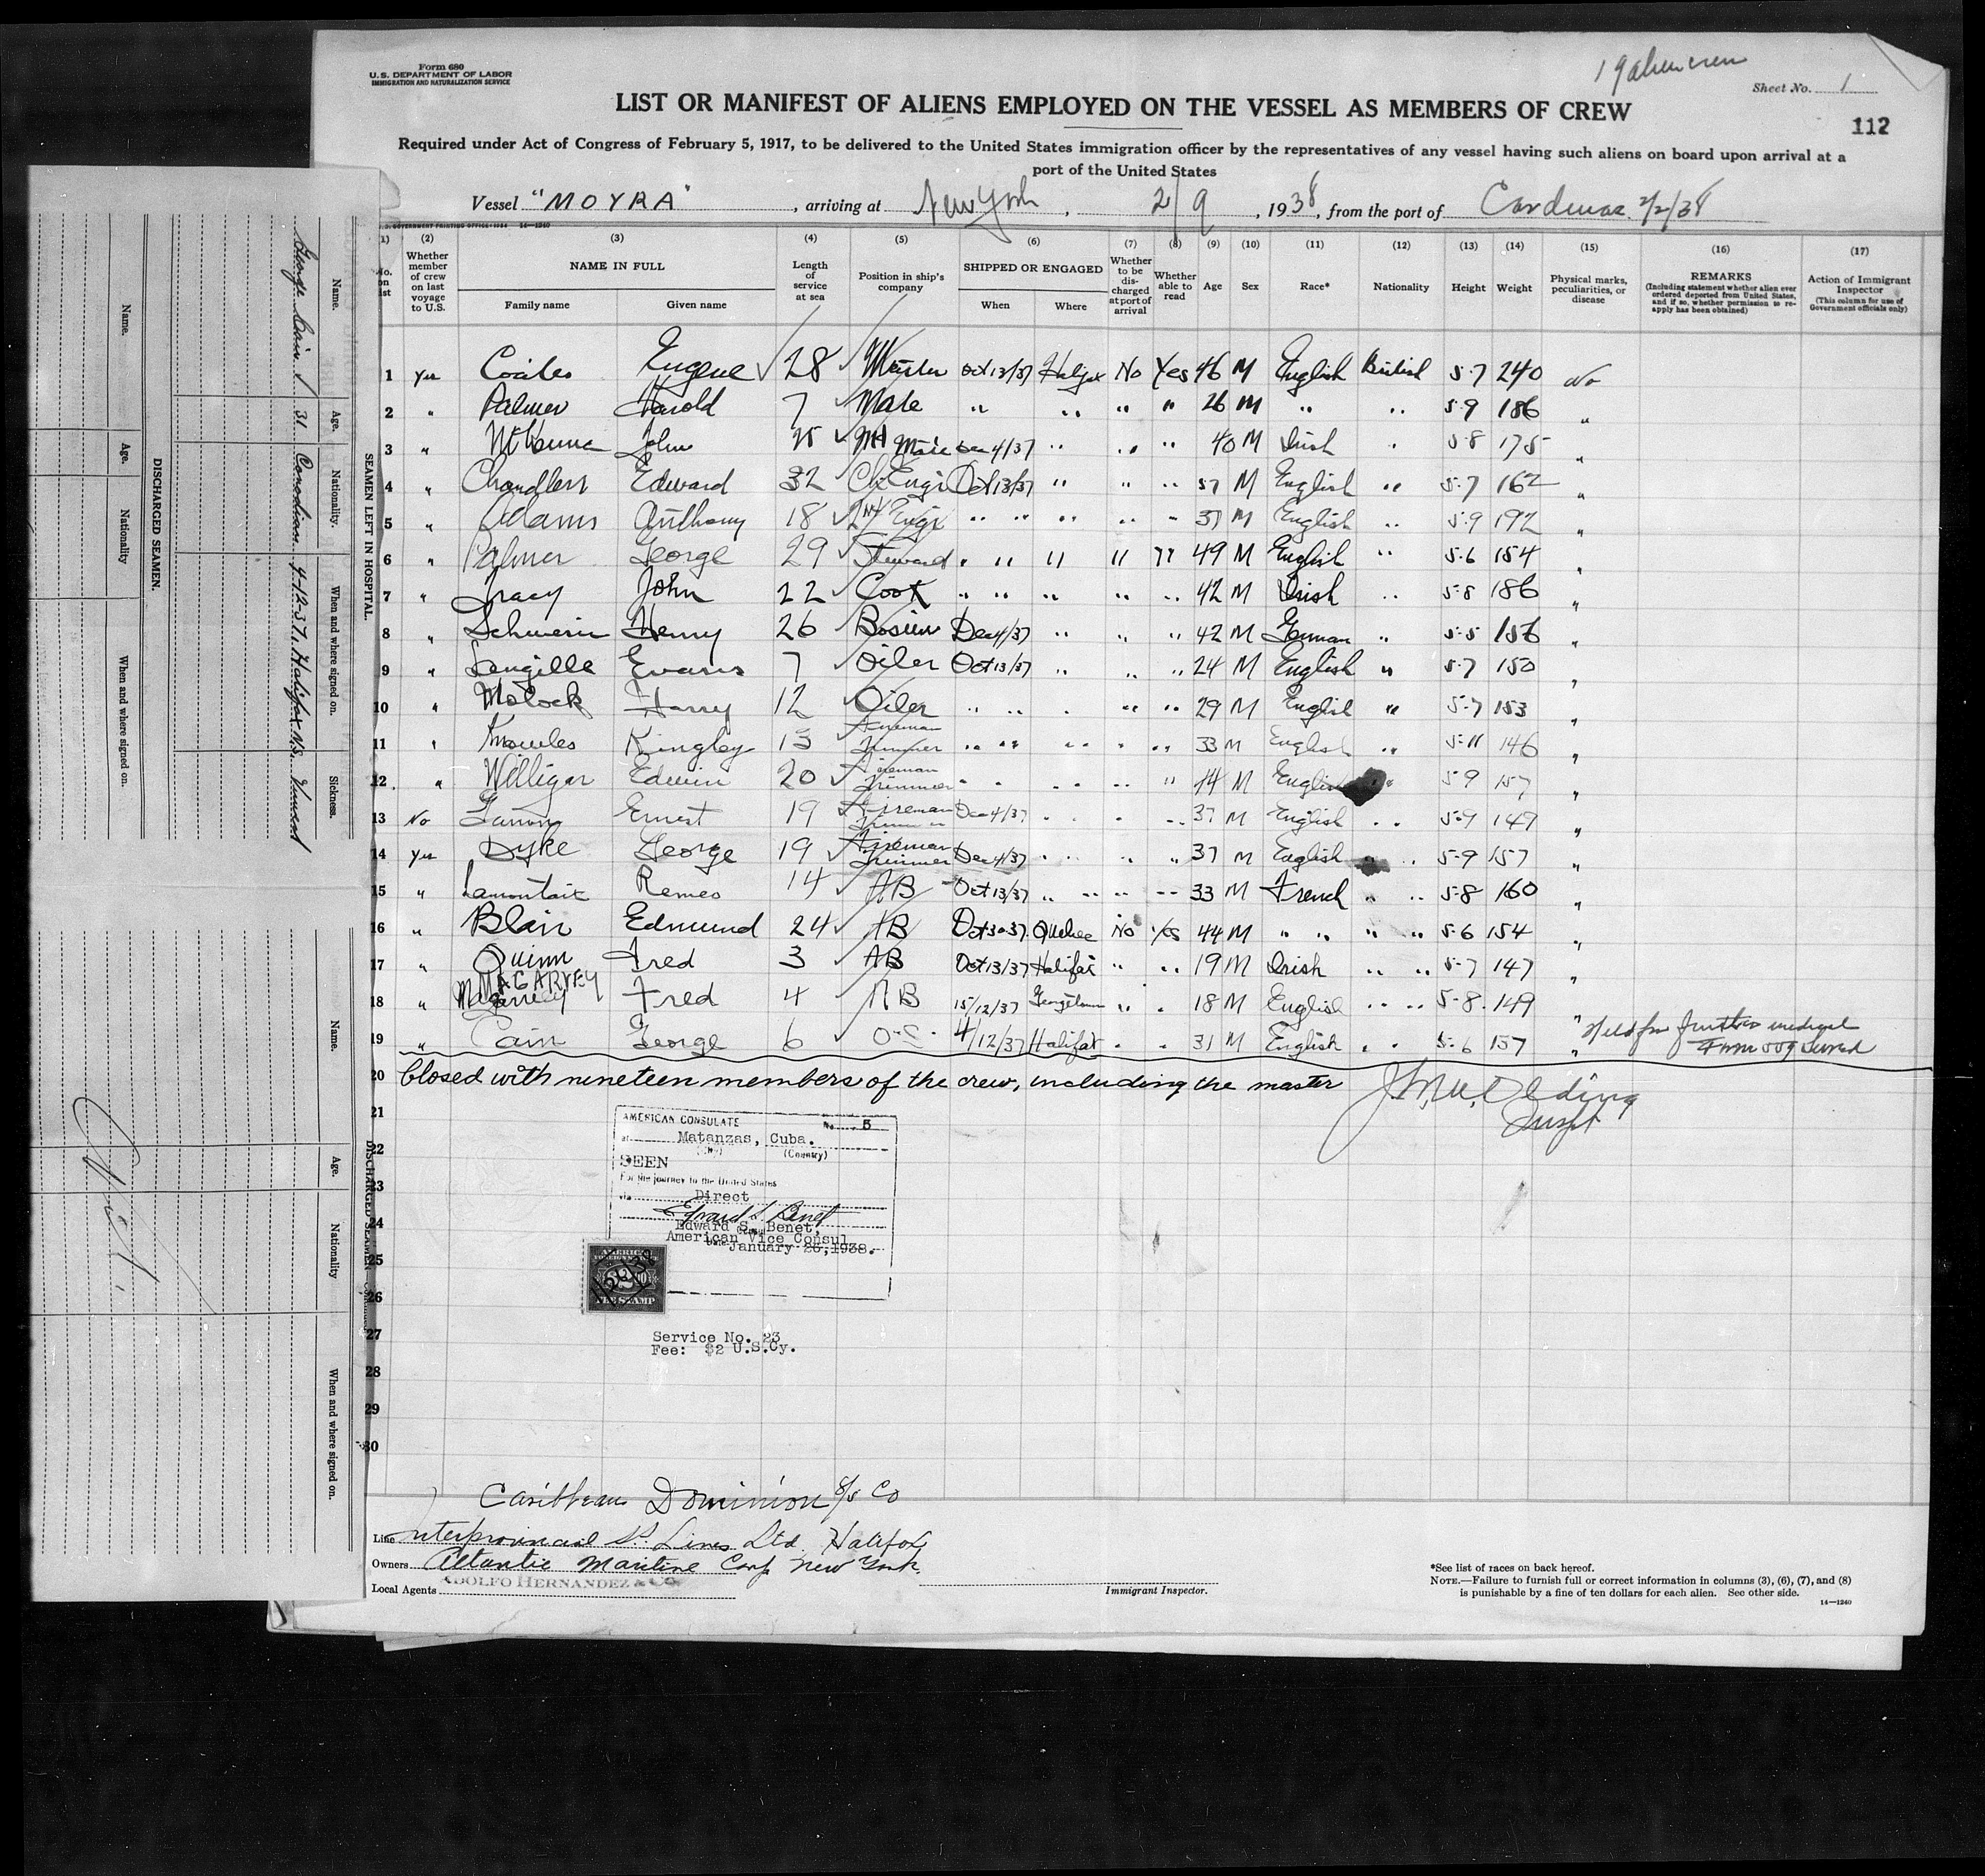 Form 680
U.S. DEPARTMENT OF LABOR
IMMIGRATION AND NATURALIZATION SERVICE
19 alien crew
Sheet No. 1
LIST OR MANIFEST OF ALIENS EMPLOYED ON THE VESSEL AS MEMBERS OF CREW
112
Required under Act of Congress of February 5, 1917, to be delivered to the United States immigration officer by the representatives of any vessel having such aliens on board upon arrival at a
port of the United States
Vessel "MOYRA", arriving at New York, 2/9, 1938, from the port of Cardenas 2/2/38
(1) (2) (3) (4) (5) (6) (7) (8) (9) (10) (11) (12) (13) (14) (15) (16) (17)
No. on list
Whether member of crew on last voyage to U.S.
NAME IN FULL
Family name Given name
Length of service at sea
Position in ship's company
SHIPPED OR ENGAGED
When Where
Whether to be discharged at port of arrival
Whether able to read
Age
Sex
Race*
Nationality
Height
Weight
Physical marks, peculiarities, or disease
REMARKS
(Including statement whether alien ever ordered deported from United States, and if so, whether permission to reapply has been obtained)
Action of Immigrant Inspector
(This column for use of Government officials only)
1 Yes Coates Eugene 28 Master Oct 13/37 Halifax No Yes 46 M English British 5-7 240 No
2 " Palmer Harold 7 Mate " " " " 26 M " " 5-9 186 "
3 " John Mate Dec 4/37 " " " 40 M Irish " 5-8 175 "
4 " Chandler Edward 32 Ch Engr Oct 13/37 " " " 57 M English " 5-7 162 "
5 " Adams Anthony 18 2nd Engr " " " " " 37 M English " 5-9 192 "
6 " Palmer George 29 Steward " " " " " 49 M English " 5-6 154 "
7 " Tracy John 22 Cook " " " " " 42 M Irish " 5-8 186 "
8 " Schwerin Henry 26 Bosun Dec 4/37 " " " 42 M German " 5-5 156 "
9 " Langille Evans 7 Oiler Oct 13/37 " " " 24 M English " 5-7 150 "
10 " Molock Harry 12 Oiler " " " " " 29 M English " 5-7 153 "
11 " Knowles Kingley 13 Fireman Trimmer " " " " " 33 M English " 5-11 146 "
12 " Willigar Edwin 20 Fireman Trimmer " " " " " 44 M English " 5-9 157 "
13 No Ernest 19 Fireman Trimmer Dec 4/37 " " " 37 M English " 5-9 149 "
14 Yes Dyke George 19 Fireman Trimmer Dec 4/37 " " " 37 M English " 5-9 157 "
15 " Remes 14 AB Oct 13/37 " " " 33 M French " 5-8 160 "
16 " Blair Edmund 24 AB Oct 30 37 Quebec No Yes 44 M " " " " 5-6 154 "
17 " Quinn Fred 3 AB Oct 13/37 Halifax " " 19 M Irish " " 5-7 147 "
MAGARVEY
18 " Magarvey Fred 4 AB 15/12/37 Georgetown " " 18 M English " " 5-8 149 "
19 " Cain George 6 O.S. 4/12/37 Halifax " " 31 M English " " 5-6 157 " Held for further medical
Form 509 served
20 Closed with nineteen members of the crew, including the master
Inspt
21
22
23
24
25
26
27
28
29
30
AMERICAN CONSULATE No. 5
at Matanzas, Cuba.
(City) (Country)
SEEN
For the journey to the United States
via Direct
Edward S. Benet
Edward S. Benet,
American Vice Consul
Date January 26, 1938.
AMERICAN
FOREIGN SERVICE
$2
FEE STAMP
Service No. 23
Fee: $2 U.S.Cy.
Caribbean Dominion S/S Co
Line Interprovincial SS. Lines Ltd. Halifax
Owners Atlantic Maritime Corp New York
Local Agents ADOLFO HERNANDEZ & Co.
Immigrant Inspector.
*See list of races on back hereof.
NOTE.—Failure to furnish full or correct information in columns (3), (6), (7), and (8)
is punishable by a fine of ten dollars for each alien. See other side.
14—1240
U.S. GOVERNMENT PRINTING OFFICE: 1934 14—1240
SEAMEN LEFT IN HOSPITAL.
Name. Age. Nationality. When and where signed on. Sickness.
George Cain 31 Canadian 4-12-37, Halifax N.S.
DISCHARGED SEAMEN.
Name. Age. Nationality When and where signed on.
DISCHARGED SEAMEN
Name. Age. Nationality When and where signed on.